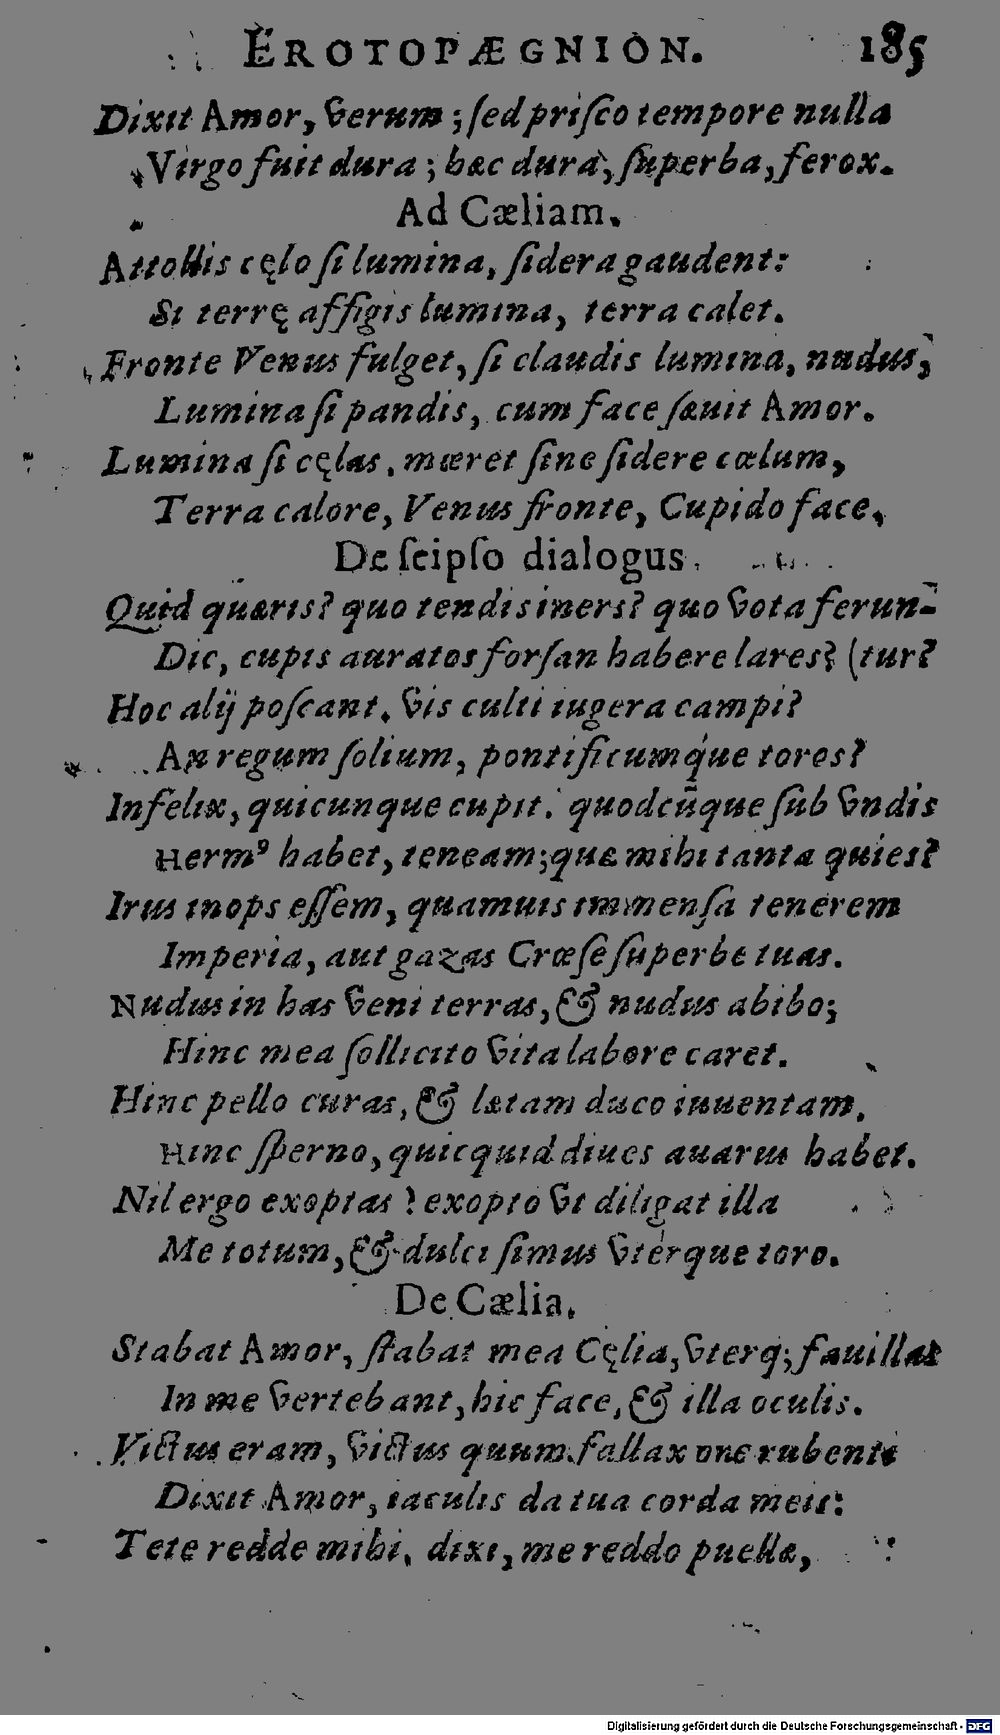 EROTOPÆGNION. 185
Dixit Amor, verum; ſed priſco tempore nulla
Virgo fuit dura; hæc dura, ſuperba, ferox.
Ad Cæliam.
Attollis cęlo ſi lumina, ſidera gaudent:
Si terrę affigis lumina, terra calet.
Fronte Venus fulget, ſi claudis lumina, nudus,
Lumina ſi pandis, cum face ſæuit Amor.
Lumina ſi cęlas, mœret ſine ſidere cœlum,
Terra calore, Venus fronte, Cupido face,
De ſeipſo dialogus.
Quid quæris? quo tendis iners? quo vota ferun-
Dic, cupis auratos forſan habere lares? (tur?
Hoc alij poſcant. vis culti iugera campi?
An regum ſolium, pontificumq́ue toros?
Infelix, quicunque cupit. quodcũque ſub vndis
Hermꝰ habet, teneam; quæ mihi tanta quies?
Irus inops eſſem, quamuis immenſa tenerem
Imperia, aut gazas Crœſe ſuperbe tuas.
Nudus in has veni terras, & nudus abibo;
Hinc mea ſollicito vita labore caret.
Hinc pello curas, & lætam duco iuuentam,
Hinc ſperno, quicquid diues auarus habet.
Nil ergo exoptas? exopto vt diligat illa
Me totum, & dulci ſimus vterque toro.
De Cælia.
Stabat Amor, ſtabat mea Cęlia, vterq; fauillas
In me vertebant, hic face, & illa oculis.
Victus eram, victus quum fallax ore rubenti
Dixit Amor, iaculis da tua corda meis:
Tete redde mihi. dixi, me reddo puellæ,
Digitalisierung gefördert durch die Deutsche Forschungsgemeinschaft - DFG